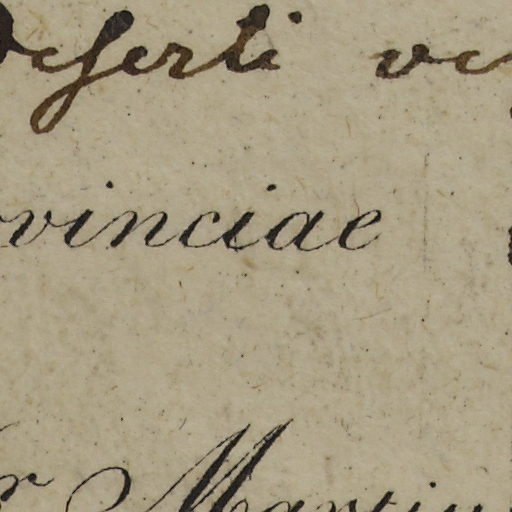 Deserti ve
vinciae
r Martin